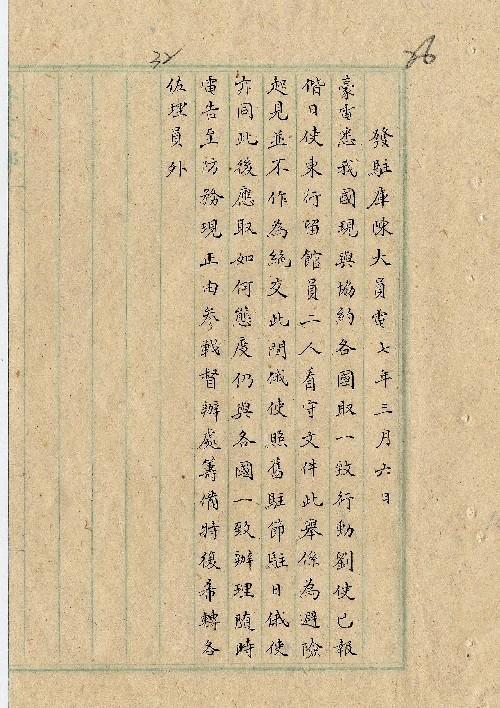 發駐庫陳大員電七年三月六日
豪電悉我國現與協約各國取一致行動劉使已報
偕日使東行留館員二人看守文件此舉係為避險
起見並不作為絕交此間俄使照舊駐節駐日俄使
亦同此後應取如何態度仍與各國一致辦理隨時
電告至防務現正由參戰督辦處籌備特復希轉各
佐理員外
32
26